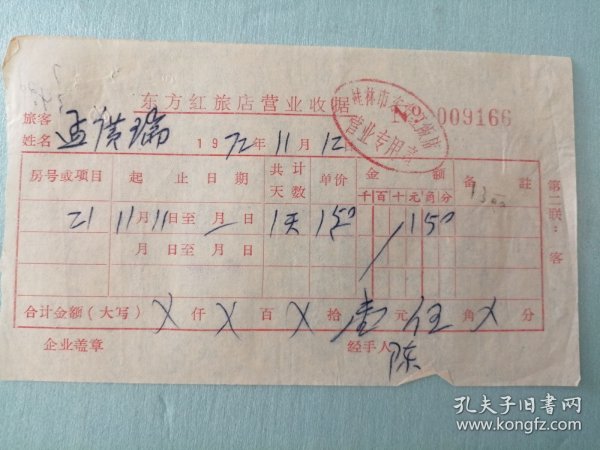 东方红旅店营业收据
桂林市东方红旅店
营业专用章
009166
旅客
姓名 孟 瑞 1972年11月12日
房号或项目 起止日期 共计天数 单价 金额 千百十元角分 备註
21 11月11日至 月 日 1天 150 150
月 日至 月 日
合计金额(大写) X仟X百X拾壹元伍角X分
企业盖章 经手人 陈
第二联:客
孔夫子旧书网
www.kongfz.com